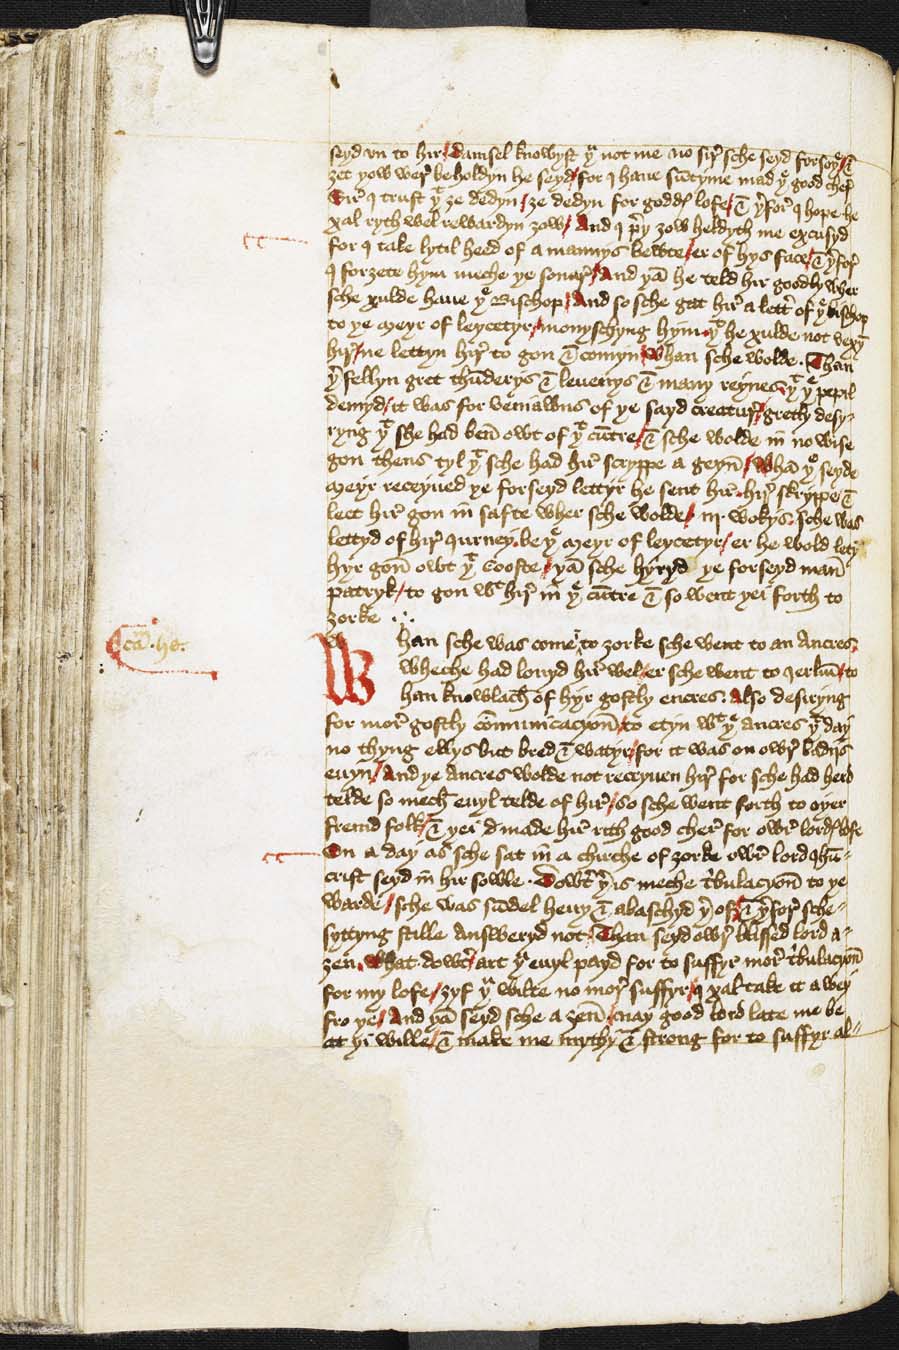 seyd vn to hir / damsel knowyst þu not me no sir sche seyd forsoþe / &
ȝet ȝow wer beholdyn he seyd / for I haue sūtyme mad þe good cher
Sir I trust þt ȝe dedyn / ȝe dedyn for goddys lofe / & þerfor I hope he
xal ryth wel rewardyn ȝow / And I prey ȝow heldyth me excusyd
for I take lytil heed of a mannys bewte / er of hys face / & þerfor
I forȝete hym meche þe sonar / And þā he teld hir goodly wher
sche xulde haue þe Bischop / And so sche gat hir a lettr of þe bischop
to þe Meyr of leycetyr / monyschyng hym þt he xulde not vexyn
hir / ne lettyn hir to gon & comyn / whan sche wolde . Than
þer fellyn gret thūderys & leuenys & many reynes / þt þe pepil
demyd / it was for veniawns of þe sayd creatur / gretly desy-
ryng þt sche had ben owt of þt cūtre / & sche wolde in no wise
gon thens tyl þt sche had hir scryppe a geyn / whā þe seyde
Meyr receyued þe forseyd lettyr he sent hir . hir skryppe &
leet hir gon in safte wher sche wolde / iij . wokys . sche was
lettyd of hir Jurney . be þe Meyr of leycetyr / er he wold letyn
hyr gon owt þt Cooste / þā sche hyryd þe forseyd man
patryk / to gon wt hir in þe cūtre & so went þei forth to
ȝorke
Ca . 50 .
Whan sche was come to ȝorke sche went to an Ancres
wheche had louyd hir wel / er sche went to Jerlm / to
han knowlach of hyr gostly encres . Also desiryng
for mor gostly cōmunicacyon / to etyn wt þe ancres þt day
no thyng ellys but bred & watyr / for it was on owr ladijs
euyn / And þe Ancres wolde not receyuen hir for sche had herd
telde so mech euyl telde of hir / so sche went forth to oþer
fremd folk / & þei made hir rith good cher for owr lordys lofe
On a day as sche sat in a chirche of ȝorke owr lord Jhū
crist seyd in hir sowle . Dowtr þer is meche tribulacyon to þe
warde / sche was sūdel heuy & abaschyd þer of / & þerfor sche
syttyng stille answeryd not / Than seyd owr blissed lord a-
ȝen / what dowtr / art þu euyl payd for to suffyr mor tribulacyon
for my lofe / ȝyf þu wilte no mor suffyr / I xal take it a wey
fro þe / And þā seyd sche a ȝen / nay good lord late me be
at þi wille / & make me mythy & strong for to suffyr al-